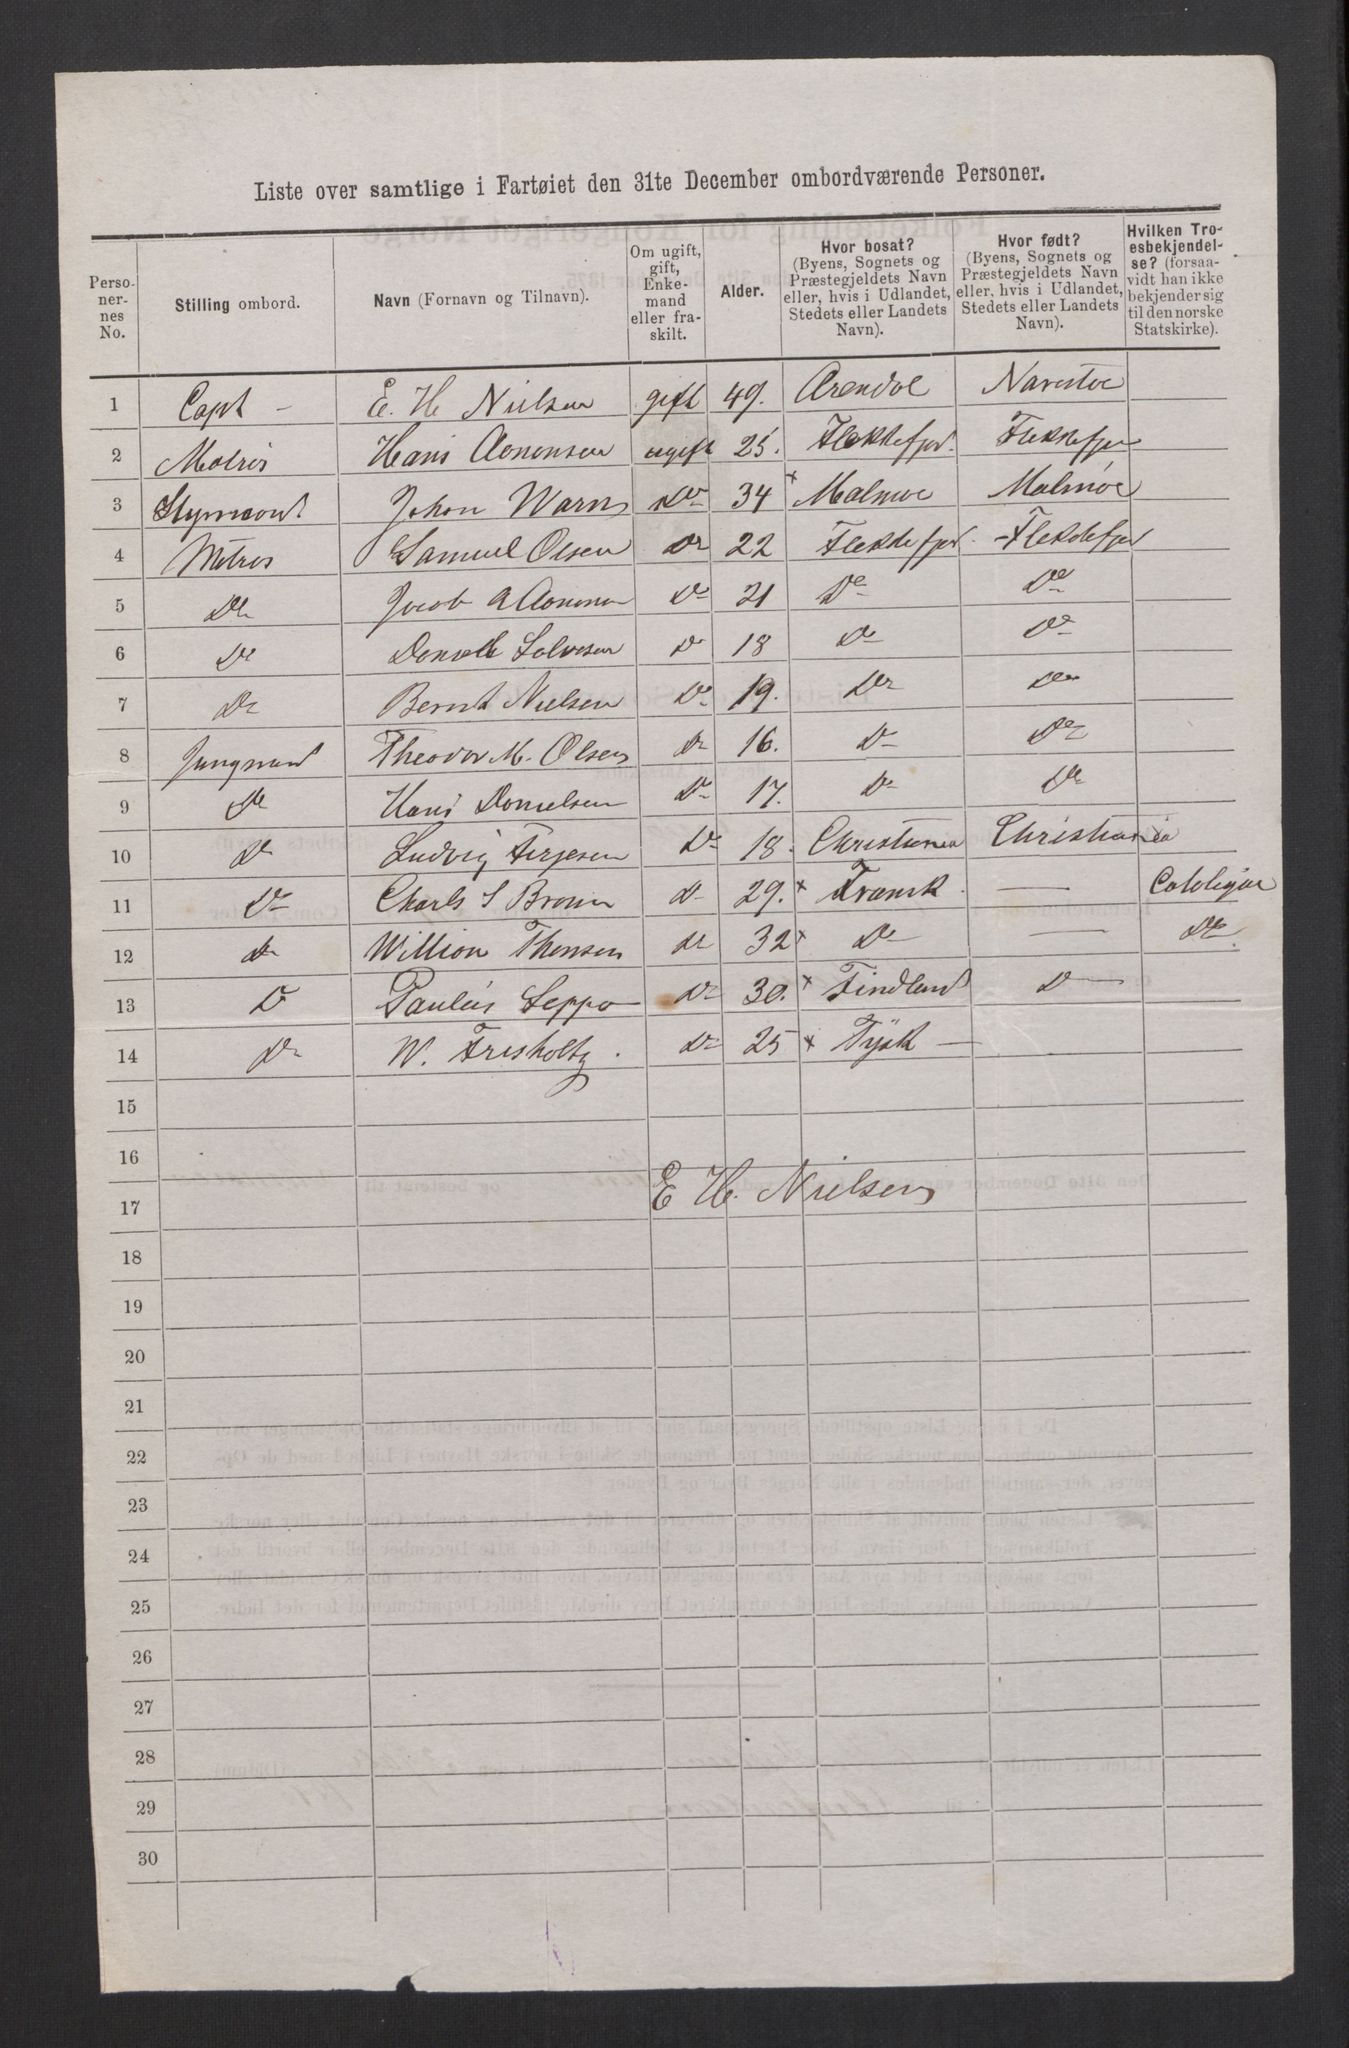 Liste over samtlige i Fartøiet den 31te December ombordværende Personer.
Personernes No. | Stilling ombord. | Navn (Fornavn og Tilnavn). | Om ugift, gift, Enkemand eller fraskilt. | Alder. | Hvor bosat? (Byens, Sognets og Præstegjeldets Navn eller, hvis i Udlandet, Stedets eller Landets Navn). | Hvor født? (Byens, Sognets og Præstegjeldets Navn eller, hvis i Udlandet, Stedets eller Landets Navn). | Hvilken Troesbekjendelse? (forsaavidt han ikke bekjender sig til den norske Statskirke).
1 Capt – E. H Nielsen gift 49. Arendal
2 Matros Hans Aanensen ugift 25. Flekkefjor. Flekkefjor
3 Styrmand Johan Warn Do 34 x Malmoe Malmöe
4 Mtros Samuel Olsen Do 22 Flekkefjor. – Flekkefjor
5 Do Jacob Do 21 Do Do
6 Do Salvesen Do 18 Do Do
7 Do Bernt Nielsen Do 19. Do Do
8 Jungmand Theodor M. Olsen Do 16. Do Do
9 Do Hans Danielsen Do 17. Do Do
10 Do Ludvig Do 18. Christiania Christiania
11 Do Charls S Brown Do 29. x Fransk — 
12 Do William Thomsen Do 32 x Do — Do
13 Do Paulus Seppo Do 30. x Findland Do —
14 Do W. Fresholtz. Do 25 x Tÿsk —
15
16
E H. Nielsen
17
18
19
20
21
22
23
24
25
26
27
28
29
30